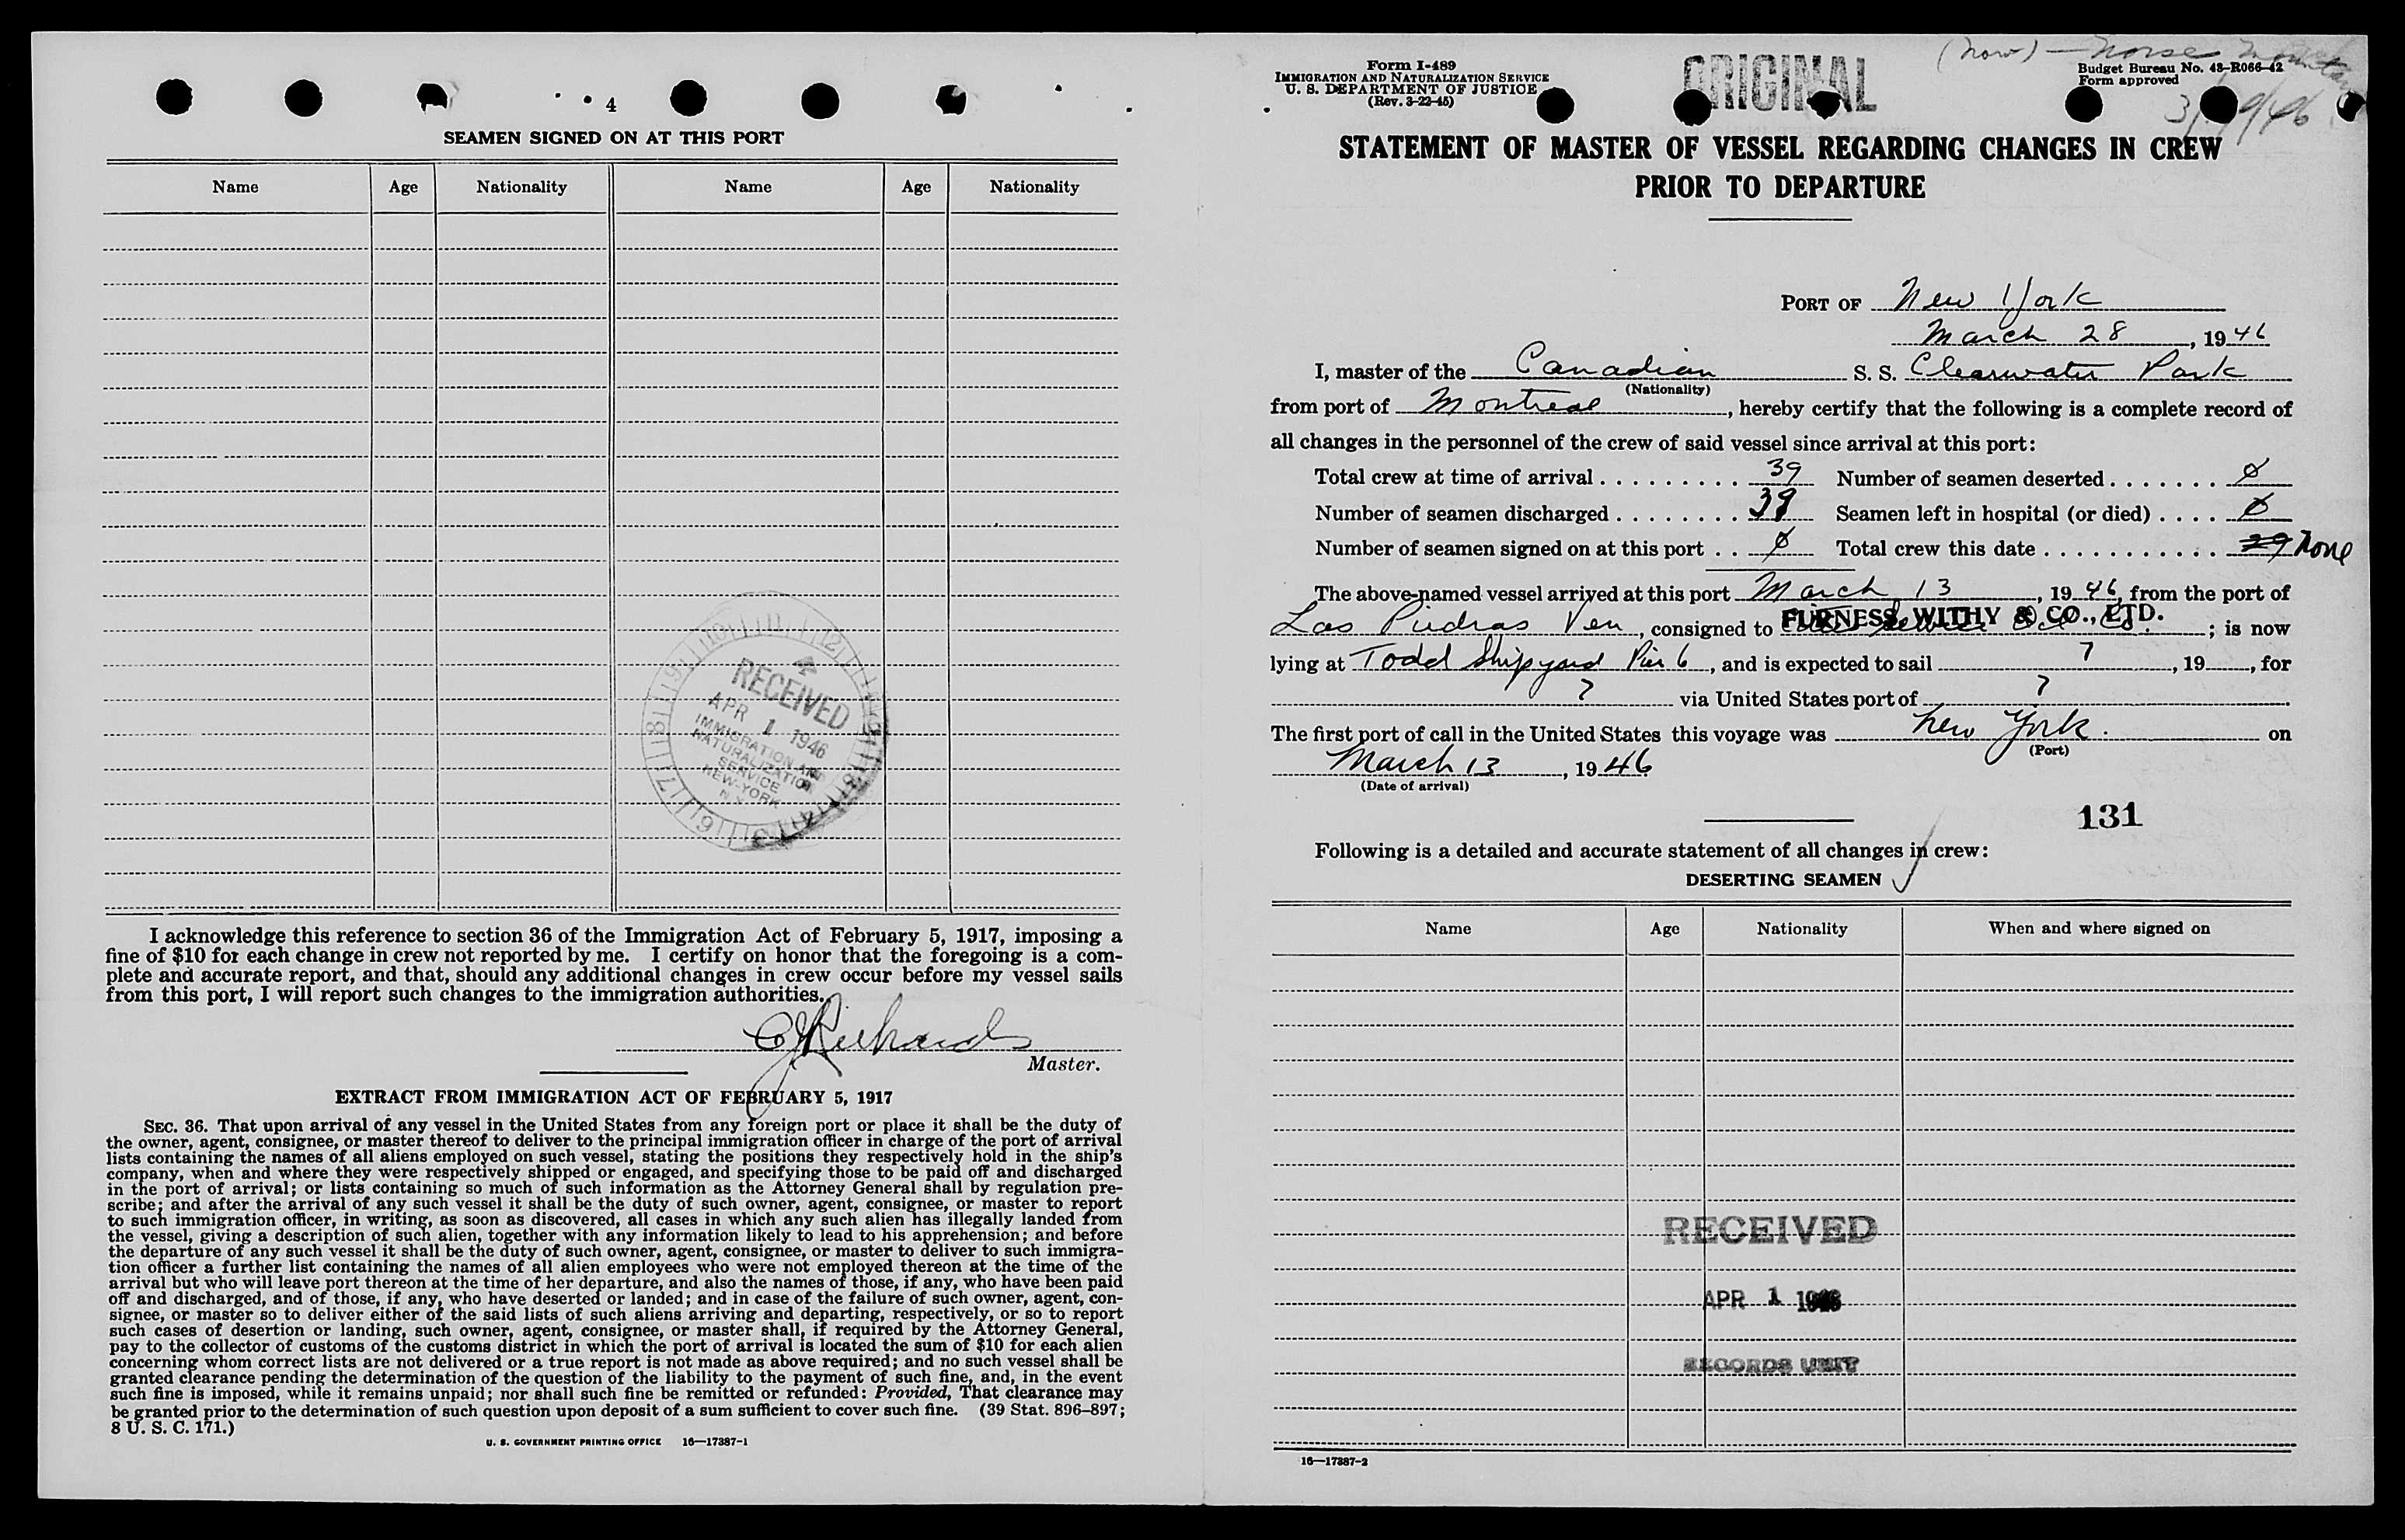 4
SEAMEN SIGNED ON AT THIS PORT
Name Age Nationality Name Age Nationality
RECEIVED
APR 1 1946
IMMIGRATION AND
NATURALIZATION
SERVICE
NEW-YORK
N.Y.
I acknowledge this reference to section 36 of the Immigration Act of February 5, 1917, imposing a
fine of $10 for each change in crew not reported by me. I certify on honor that the foregoing is a com-
plete and accurate report, and that, should any additional changes in crew occur before my vessel sails
from this port, I will report such changes to the immigration authorities.
C J Richards
Master.
EXTRACT FROM IMMIGRATION ACT OF FEBRUARY 5, 1917
SEC. 36. That upon arrival of any vessel in the United States from any foreign port or place it shall be the duty of
the owner, agent, consignee, or master thereof to deliver to the principal immigration officer in charge of the port of arrival
lists containing the names of all aliens employed on such vessel, stating the positions they respectively hold in the ship's
company, when and where they were respectively shipped or engaged, and specifying those to be paid off and discharged
in the port of arrival; or lists containing so much of such information as the Attorney General shall by regulation pre-
scribe; and after the arrival of any such vessel it shall be the duty of such owner, agent, consignee, or master to report
to such immigration officer, in writing, as soon as discovered, all cases in which any such alien has illegally landed from
the vessel, giving a description of such alien, together with any information likely to lead to his apprehension; and before
the departure of any such vessel it shall be the duty of such owner, agent, consignee, or master to deliver to such immigra-
tion officer a further list containing the names of all alien employees who were not employed thereon at the time of the
arrival but who will leave port thereon at the time of her departure, and also the names of those, if any, who have been paid
off and discharged, and of those, if any, who have deserted or landed; and in case of the failure of such owner, agent, con-
signee, or master so to deliver either of the said lists of such aliens arriving and departing, respectively, or so to report
such cases of desertion or landing, such owner, agent, consignee, or master shall, if required by the Attorney General,
pay to the collector of customs of the customs district in which the port of arrival is located the sum of $10 for each alien
concerning whom correct lists are not delivered or a true report is not made as above required; and no such vessel shall be
granted clearance pending the determination of the question of the liability to the payment of such fine, and, in the event
such fine is imposed, while it remains unpaid; nor shall such fine be remitted or refunded: Provided, That clearance may
be granted prior to the determination of such question upon deposit of a sum sufficient to cover such fine. (39 Stat. 896–897;
8 U. S. C. 171.)
U. S. GOVERNMENT PRINTING OFFICE 16—17387-1
(now) — Norse Mountain
Form I-489
IMMIGRATION AND NATURALIZATION SERVICE
U. S. DEPARTMENT OF JUSTICE
(Rev. 3-22-45)
ORIGINAL
Budget Bureau No. 43-R066-42
Form approved
STATEMENT OF MASTER OF VESSEL REGARDING CHANGES IN CREW
PRIOR TO DEPARTURE
PORT OF New York
March 28, 1946
I, master of the Canadian S. S. Clearwater Park
(Nationality)
from port of Montreal, hereby certify that the following is a complete record of
all changes in the personnel of the crew of said vessel since arrival at this port:
Total crew at time of arrival . . . . . . . . . 39 Number of seamen deserted . . . . . . . 0
Number of seamen discharged . . . . . . . . 39 Seamen left in hospital (or died) . . . . 0
Number of seamen signed on at this port . . 0 Total crew this date . . . . . . . . . . . 29 None
The above-named vessel arrived at this port March 13, 1946, from the port of
Las Piedras Ven, consigned to FURNESS, WITHY & CO., LTD.; is now
lying at Todd Shipyard Pier 6, and is expected to sail ?, 19, for
? via United States port of ?
The first port of call in the United States this voyage was New York. on
(Port)
March 13, 1946
(Date of arrival)
131
Following is a detailed and accurate statement of all changes in crew:
DESERTING SEAMEN
Name Age Nationality When and where signed on
RECEIVED
APR 1 1946
RECORDS UNIT
16—17387-2